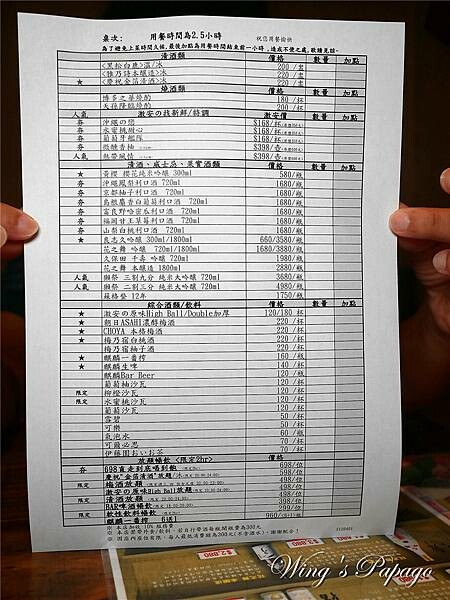 桌次: 用餐時間為2.5小時 祝您用餐愉快
為了避免上菜時間久候,最後加點為用餐時間結束前一小時,造成不便之處,敬請見諒。
清酒類 價格 數量 加點
<黑松白鹿>溫/冰 200 /壺
<雅乃詩本釀造>冰 220 /壺
★ <慶祝金箔清酒>冰 220 /壺
燒酒類 價格 數量 加點
博多之華燒酌 180 /杯
天孫降臨燒酌 200 /杯
人氣 激安の技新鮮/特調 激安價 數量 加點
夯 沖繩の戀 $168/杯
夯 水蜜桃甜心 $168/杯
夯 葡萄牙艦隊 $168/杯
夯 微醺香柚 $398/壺
人氣 熱帶風情 $398/壺
清酒、威士忌、果實酒類 價格 數量 加點
★ 黃櫻 櫻花純米吟釀 300ml 580/瓶
夯 沖繩鳳梨利口酒 720ml 1680/瓶
夯 京都柚子利口酒 720ml 1680/瓶
夯 島根麝香白葡萄利口酒 720ml 1680/瓶
夯 富良野哈密瓜利口酒 720ml 1680/瓶
夯 福岡甘王草莓利口酒 720ml 1680/瓶
夯 山梨白桃利口酒 720ml 1680/瓶
★ 良志久吟釀 300ml/1800ml 660/3580/瓶
花之舞 吟釀 720ml/1800ml 1680/3880/瓶
久保田 千壽 吟釀 720ml 1980/瓶
花之舞 本釀造 1800ml 2880/瓶
人氣 獺祭 三割九分 純米大吟釀 720ml 3680/瓶
人氣 獺祭 二割三分 純米大吟釀 720ml 4980/瓶
蘇格登 12年 1750/瓶
綜合酒類/飲料 價格 數量 加點
★ 激安の原味High Ball/Double加厚 120/180 /杯
★ 朝日ASAHI濃醇梅酒 220 /杯
★ CHOYA 本格梅酒 220 /杯
★ 梅乃宿白桃酒 220 /杯
梅乃宿柚子酒 220 /杯
★ 麒麟一番搾 160 /瓶
★ 麒麟生啤 140 /杯
麒麟Bar Beer 120 /瓶
葡萄柚沙瓦 120 /杯
限定 柳橙沙瓦 120 /杯
限定 水蜜桃沙瓦 120 /杯
葡萄沙瓦 120 /杯
雪碧 50 /杯
可樂 50 /杯
氣泡水 60 /瓶
可爾必思 70 /杯
伊藤園おいお茶 70 /杯
放題暢飲 <限定2hr> 價格
夯 698直走到底喝到飽 698/位
慶祝"金箔清酒"放題/冰 498/位
限定 梅酒放題 498/位
激安の原味High Ball放題 398/位
限定 清酒放題 398/位
BAR啤酒暢飲 299/位
限定 軟性飲料暢飲
麒麟一番搾 6送1 960
※ 本店加收 10% 服務費
Wing's Papago